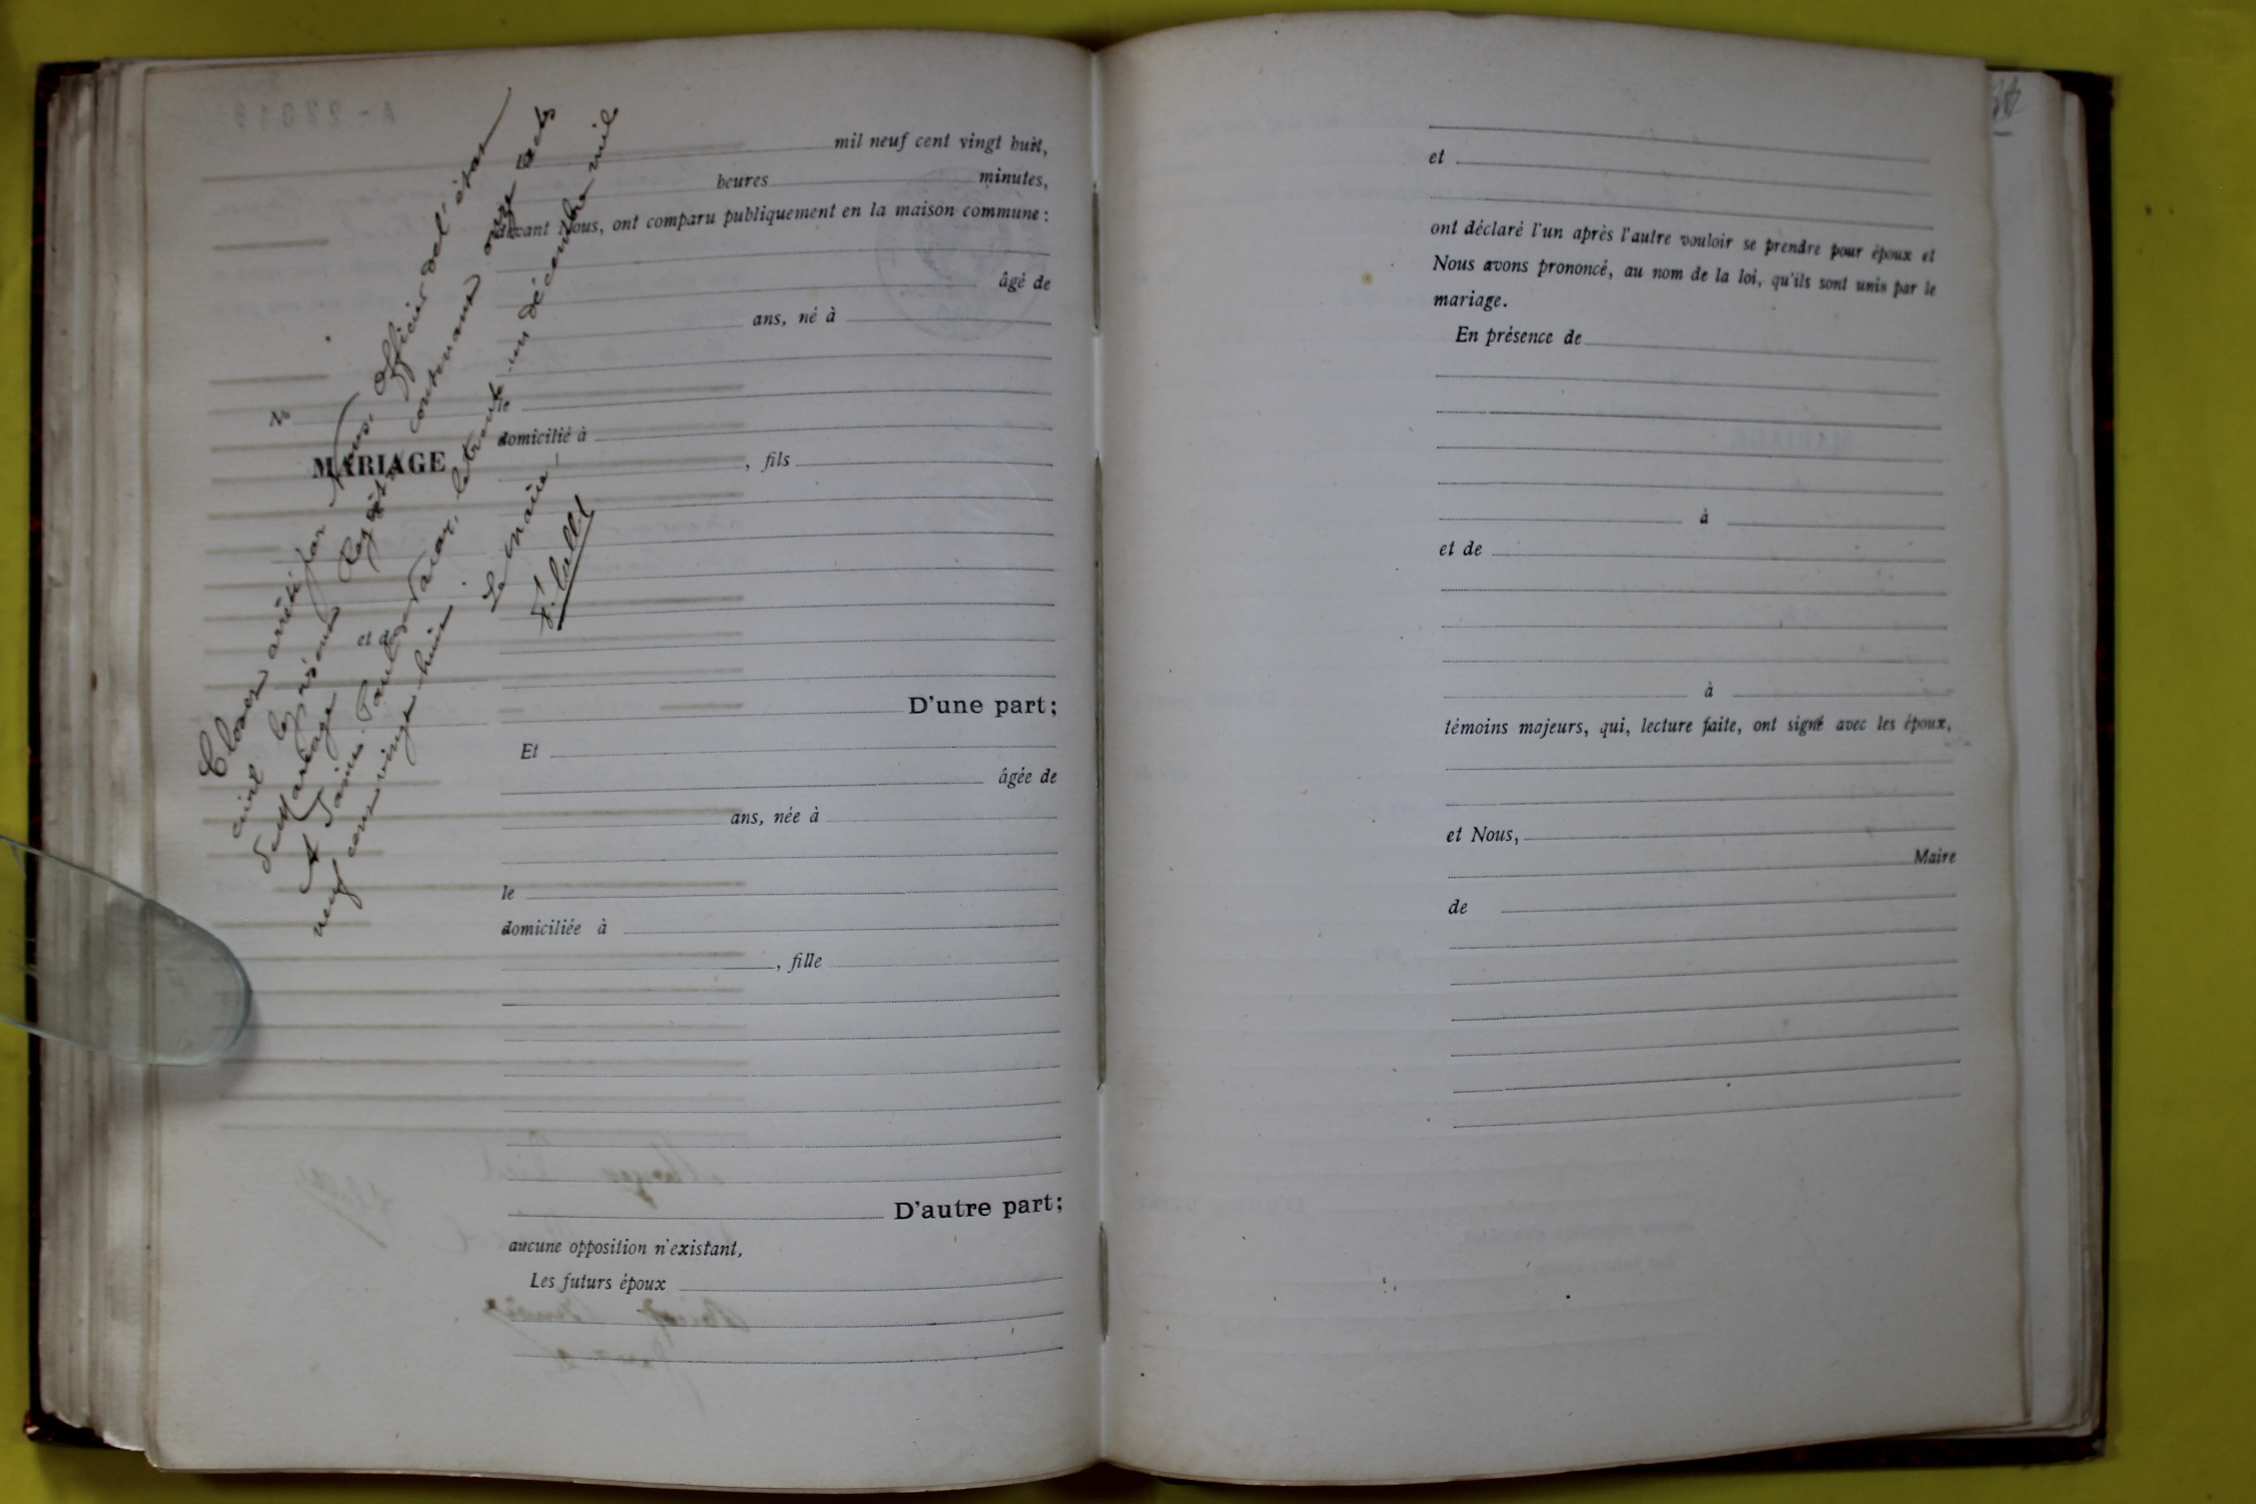 mil neuf cent vingt huit,
heures minutes,
devant Nous, ont comparu publiquement en la maison commune :
âgé de
ans, né à
le
domicilié à
, fils
D'une part ;
Et
âgée de
ans, née à
le
domiciliée à
, fille
D'autre part ;
aucune opposition n'existant,
Les futurs époux
No
MARIAGE
et de
Clos et arrêté par Nous, Officier de l'état
civil le présent Registre contenant onze actes
de Mariage
A Saint-Paul le trente un décembre mil
neuf cent vingt huit.
Le Maire
et
ont déclaré l'un après l'autre vouloir se prendre pour époux et
Nous avons prononcé, au nom de la loi, qu'ils sont unis par le
mariage.
En présence de
à
et de
à
témoins majeurs, qui, lecture faite, ont signé avec les époux,
et Nous,
Maire
de